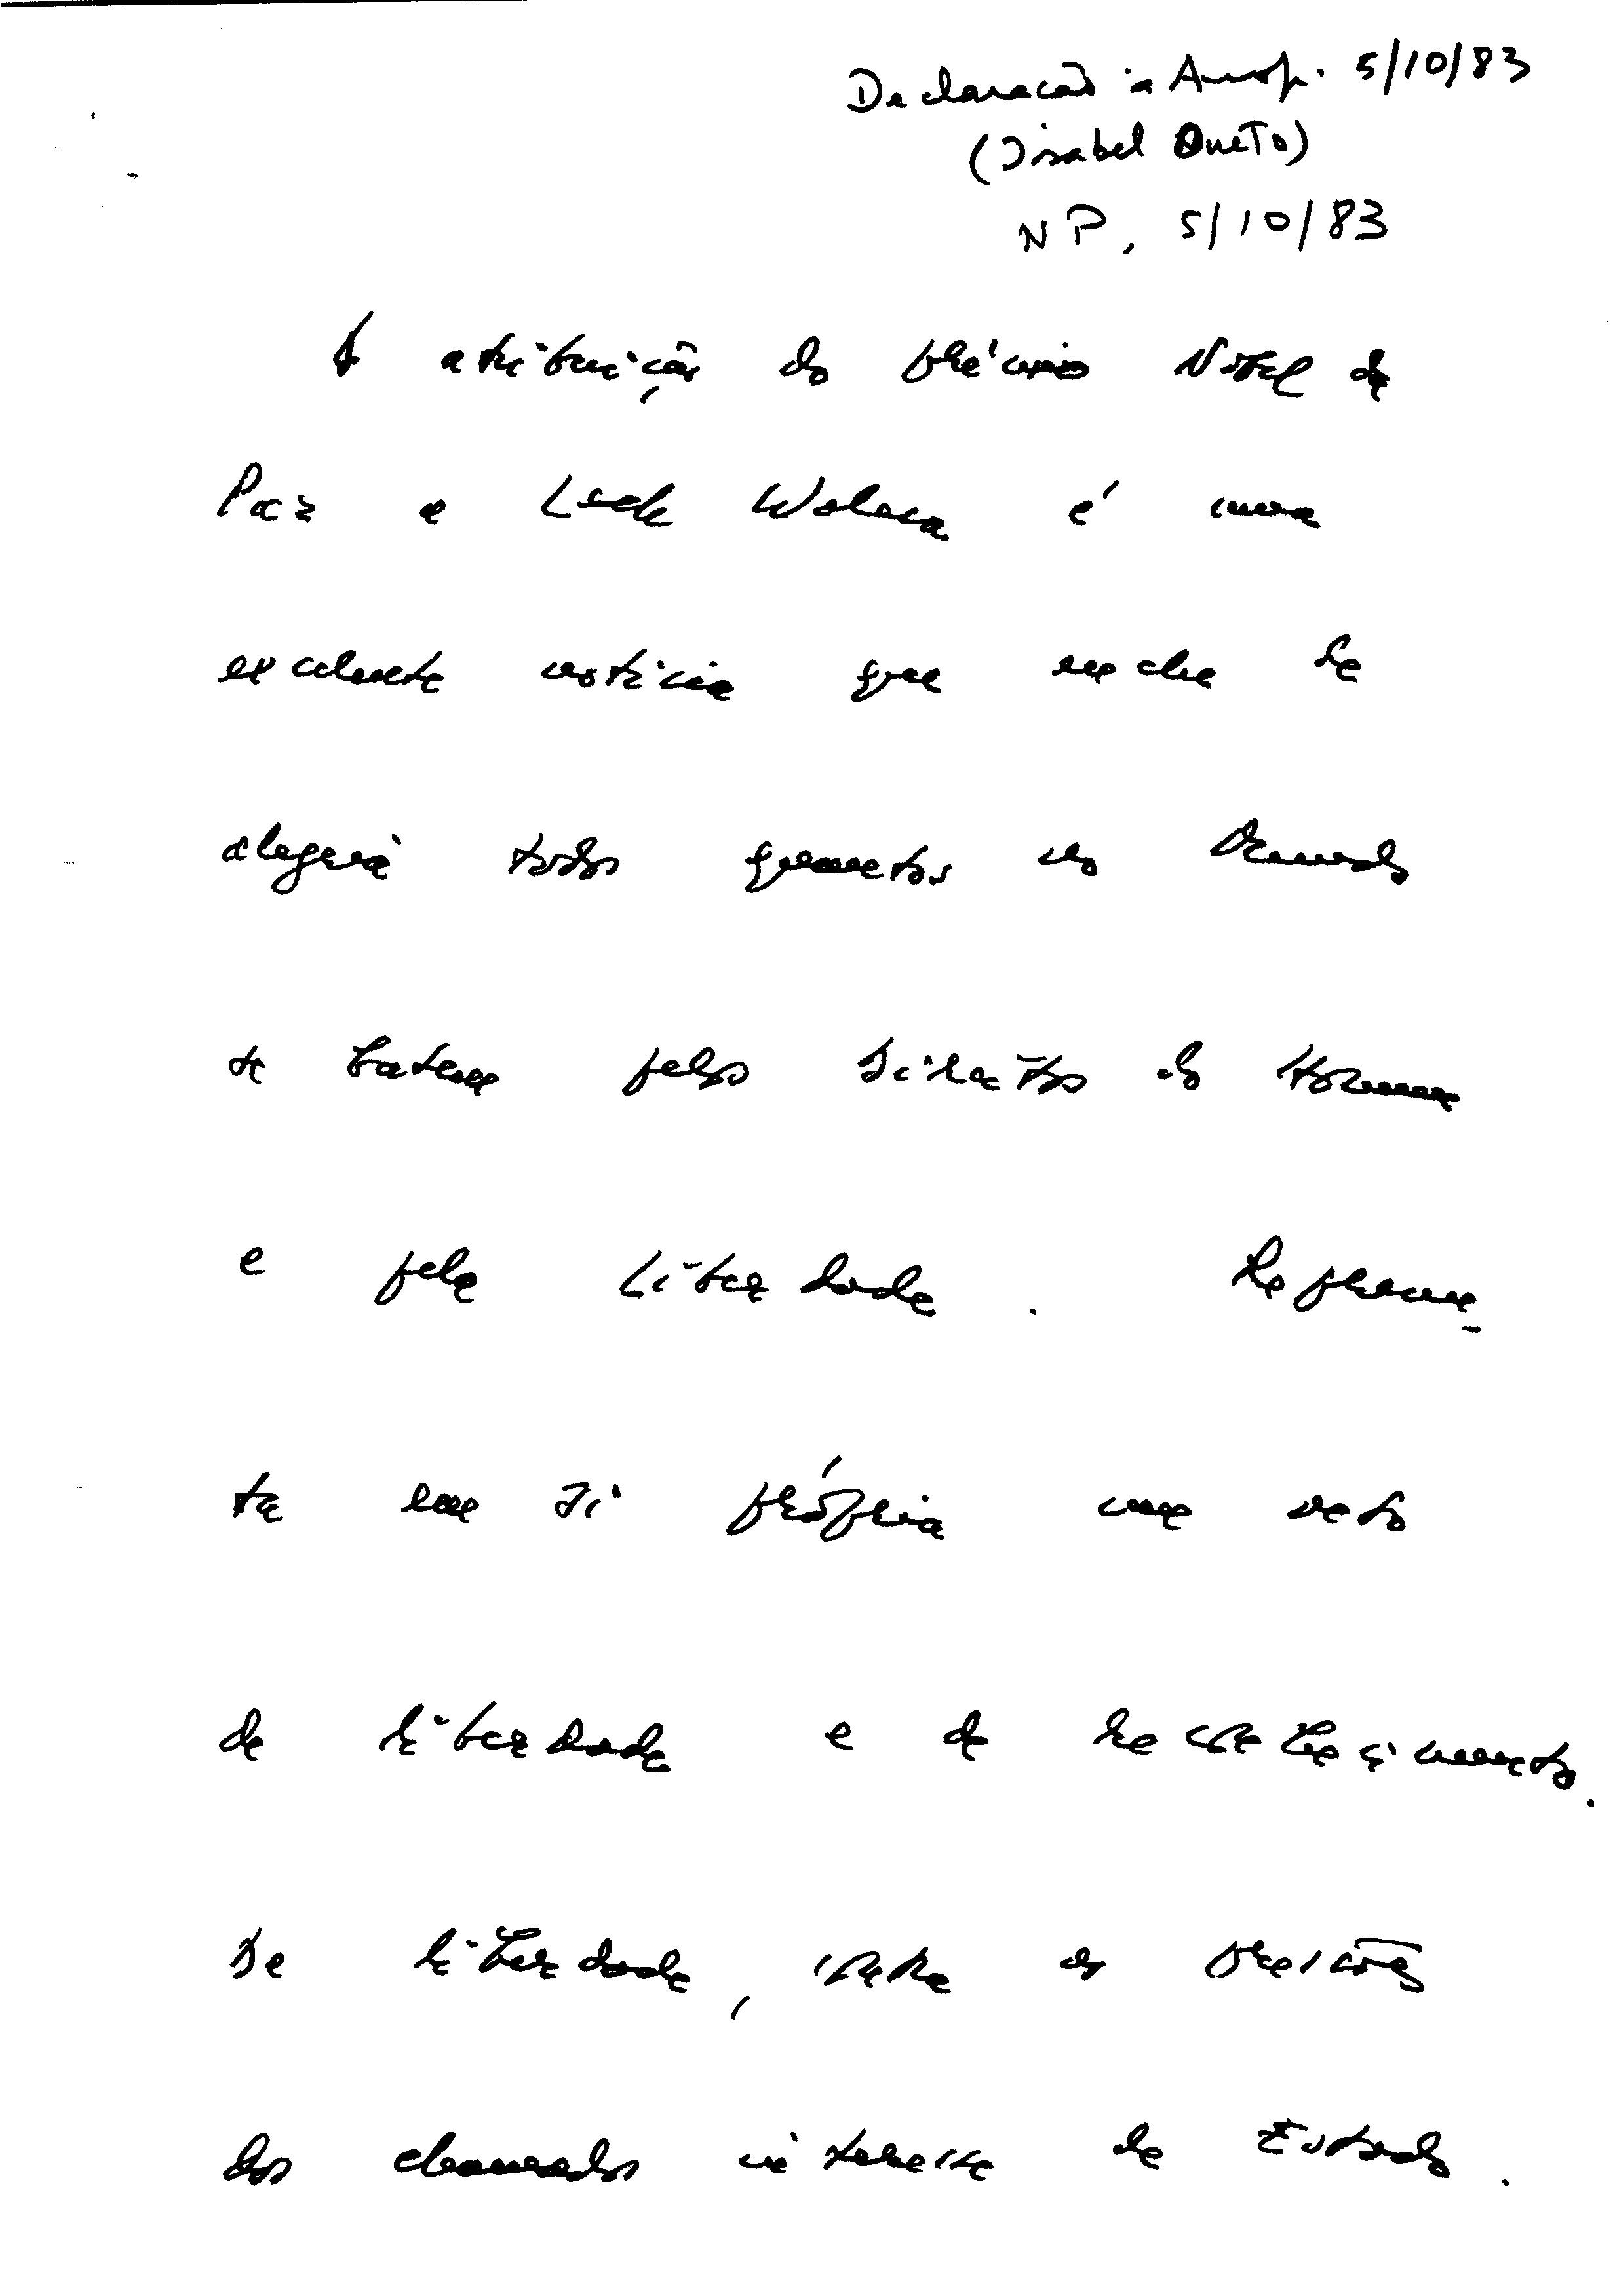 Declaração à Anop. 5/10/83
(Isabel Oneto)
NP, 5/10/83
A atribuição do prémio Nobel da
Paz a Lech Walesa é uma
excelente notícia que enche de
alegria todos quantos no Mundo
se batem pelos Direitos do Homem
e pela Liberdade. Represen-
ta em si própria um acto
de liberdade e de
De liberdade, contra as pressões
dos chamados interesse de Estado.